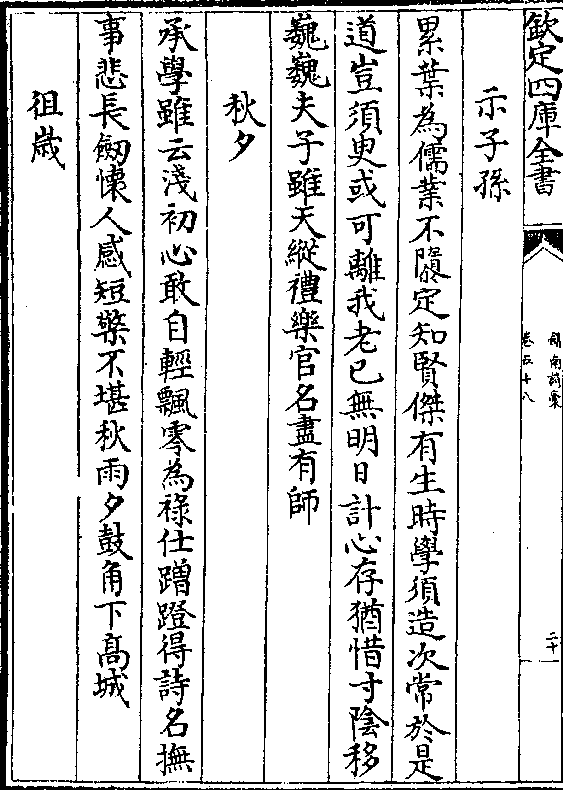 欽定四庫全書
卷五十八
二十
示子孫
累葉為儒業不隳定知賢傑有生時學須造次常於是
道豈須臾或可離我老已無明日計心存猶惜寸陰移
巍巍夫子雖天縱禮樂官名盡有師
秋夕
承學雖云淺初心敢自輕飄零為祿仕蹭蹬得詩名撫
事悲長劒懷人感短檠不堪秋雨夕鼓角下高城
徂歲